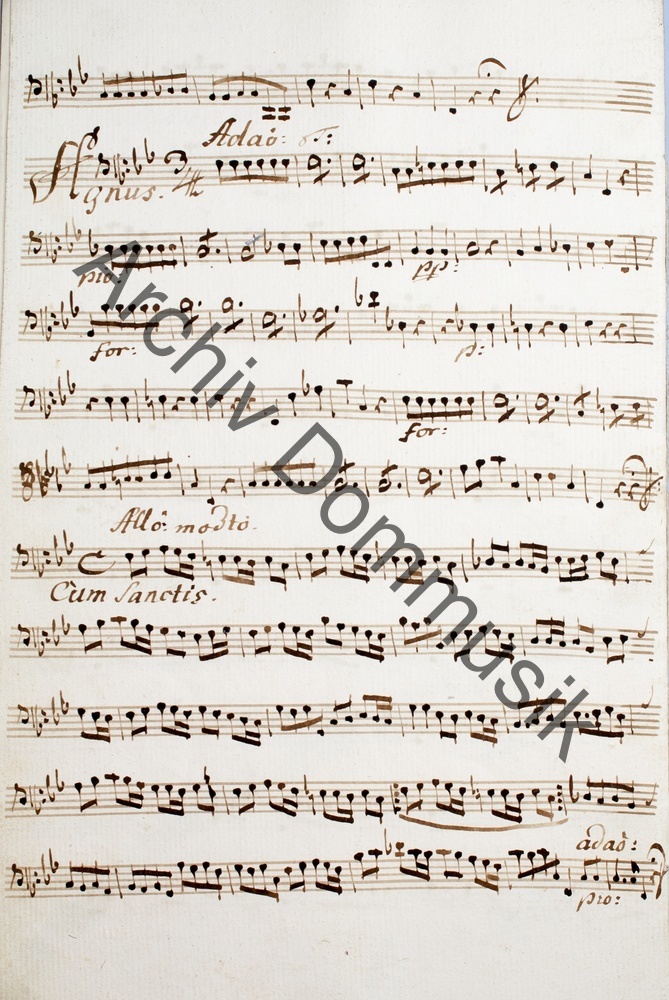 Adaỏ:
Agnus. 3/4
pio: pp:
for: p:
for:
Allỏ: modto.
C
Cùm Sanctis.
adaỏ:
pio:
Archiv Dommusik